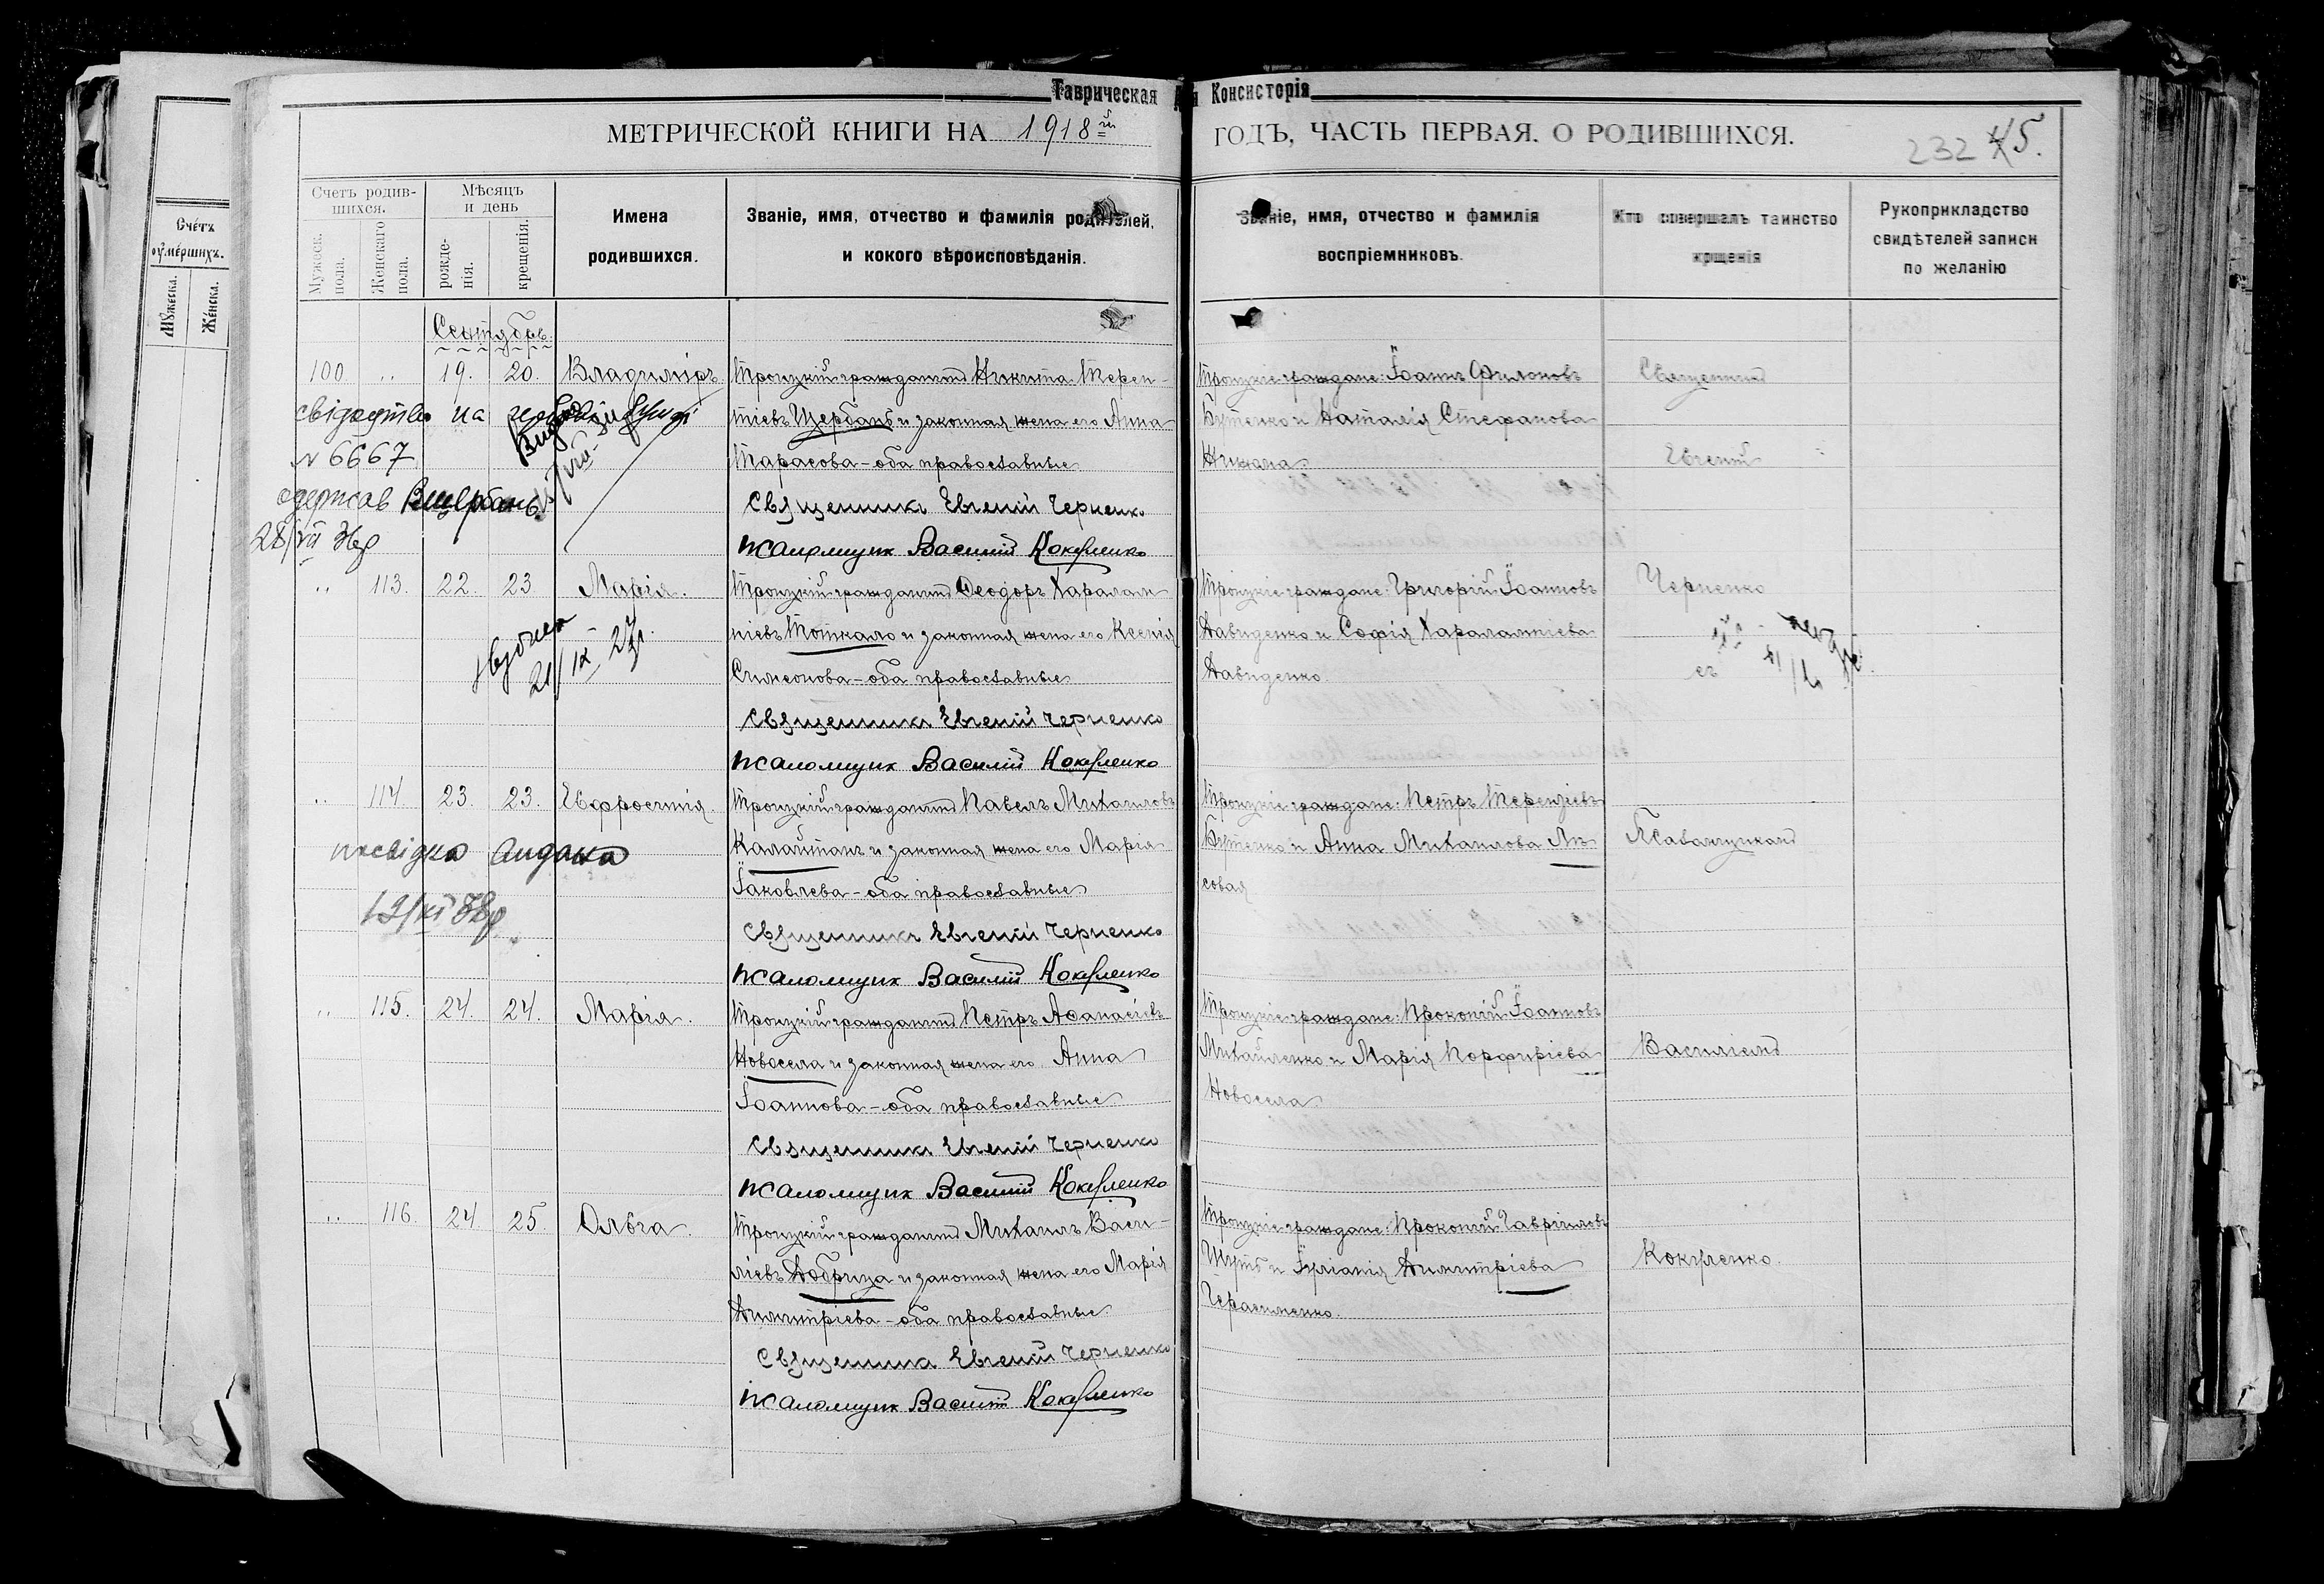 Таврическая Консисторія
МЕТРИЧЕСКОЙ КНИГИ НА 1918й ГОДЪ, ЧАСТЬ ПЕРВАЯ. О РОДИВШИХСЯ.
232 45.
Счетъ родившихся.
Мужеск. пола.
Женскаго пола.
Мѣсяцъ и день
рожденія.
крещенія.
Имена родившихся.
Званіе, имя, отчество и фамилія родителей, и кокого вѣроисповѣданія.
Званіе, имя, отчество и фамилія воспріемниковъ.
Кто совершалъ таинство крщенія
Рукоприкладство свидѣтелей записи по желанію
Счéтъ оумéршихъ.
Мꙋ́жеска.
Жéнска.
Сентябрь.
100 " 19. 20. Владиміръ
Троицкій гражданинъ Никита Терен-
тіевъ Щербань и законная жена его Анна
Тарасова - оба православные
Священникъ Евгеній Черненко
Псаломщик Василій Кокуленко
Троицкіе граждане: Іоаннъ Филоновъ
Бутенко и Наталія Стефанова
Священникъ
Евгеній
№ 6667
одержав Щербань
" 113. 22. 23. Марія.
Троицкій гражданинъ Ѳеодоръ Харалам
піевъ Тоткало и законная жена его Ксенія
Симеонова - оба православные
Священникъ Евгеній Черненко
Псаломщик Василій Кокуленко
Троицкіе граждане: Григорій Іоанновъ
Давиденко и Софія Харалампіева
Давиденко
Черненко
съ
" 114. 23. 23. Евфросинія.
Троицкій гражданинъ Павелъ Михаиловъ
Калайтанъ и законная жена его Марія
Іаковлева - оба православные
Священникъ Евгеній Черненко
Псаломщик Василій Кокуленко
Троицкіе граждане: Петръ Терентіевъ
Бутенко и Анна Михаилова Ли-
совая
Псаломщикомъ
" 115. 24. 24. Марія.
Троицкій гражданинъ Петръ Аѳанасіевъ
Новосела и законная жена его Анна
Іоаннова - оба православные
Священникъ Евгеній Черненко
Псаломщик Василій Кокуленко
Троицкіе граждане: Прокопій Іоанновъ
Михайленко и Марія Порфиріева
Новосела
Василіемъ
" 116. 24. 25. Ольга.
Троицкій гражданинъ Михаилъ Васи-
ліевъ Добрица и законная жена его Марія
Димитріева - оба православные
Священникъ Евгеній Черненко
Псаломщик Василій Кокуленко
Троицкіе граждане: Прокопій Гавріиловъ
Шутъ и Іуліанія Димитріева
Герасименко.
Кокуленко.